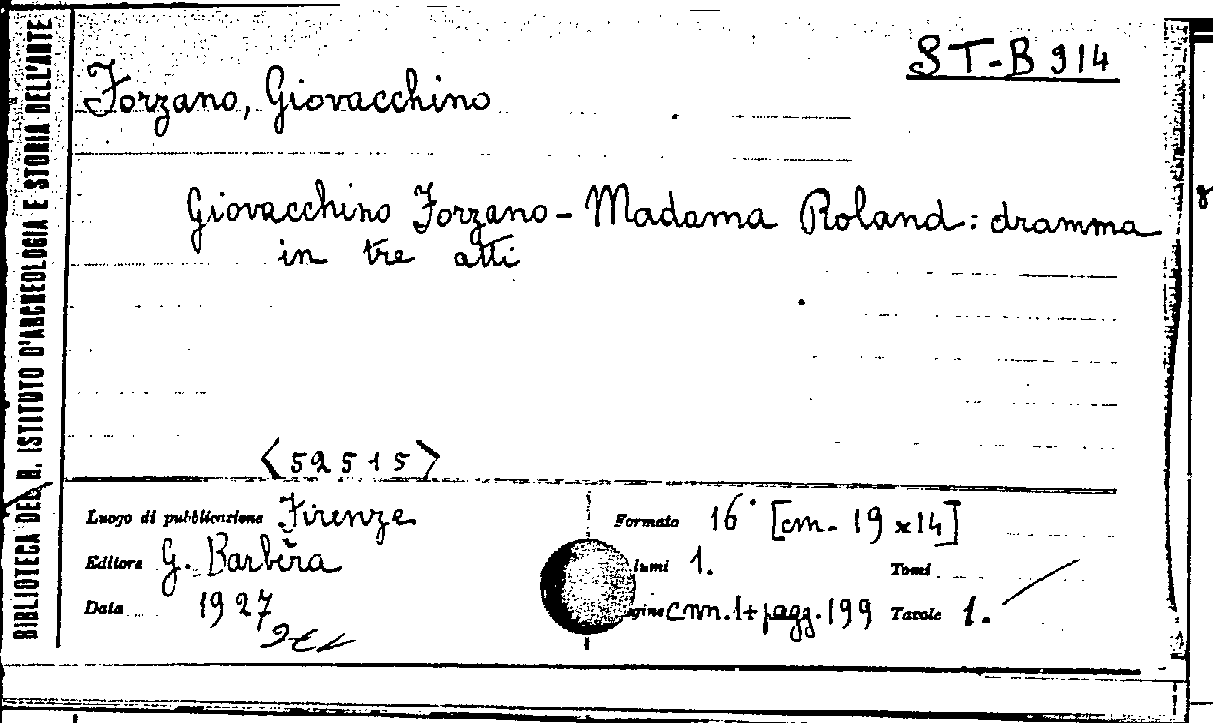 BIBLIOTECA DEL R. ISTITUTO D'ARCHEOLOGIA E STORIA DELL'ARTE
ST-B 914
Forzano, Giovacchino
Giovacchino Forzano - Madama Roland: dramma
in tre atti
<52515>
Luogo di pubblicazione Firenze
Editore G. Barbèra
Data 1927
Formato 16° [cm. 19 x 14]
lumi 1. Tomi
agine cnn. 1 + pagg. 199 Tavole 1.